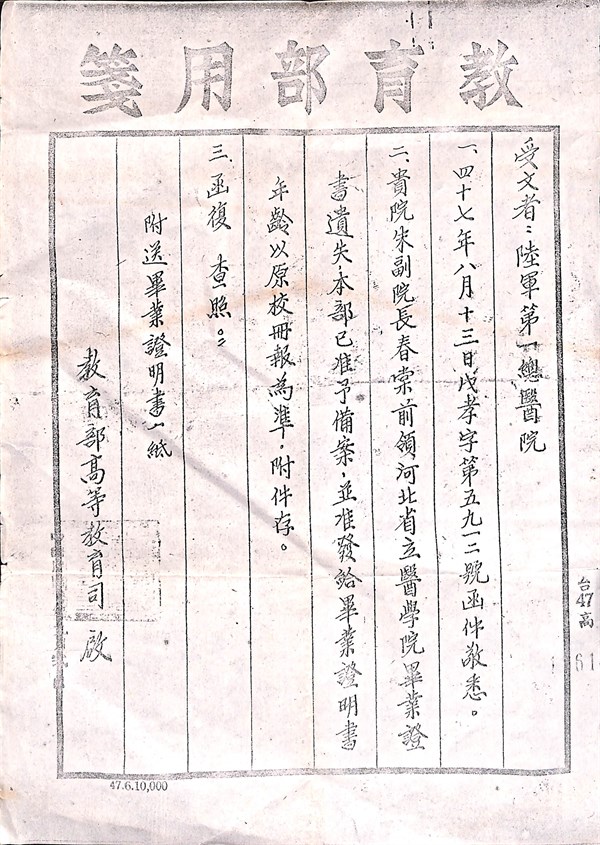 教育部用箋
受文者：陸軍第一總醫院
一、四十七年八月十三日戊孝字第五九一二號函件敬悉。
二、貴院朱副院長春棠前領河北省立醫學院畢業證
書遺失，本部已准予備案，並准發給畢業證明書
年齡以原校冊報為準，附件存。
三、函復 查照。
附送畢業證明書一紙
教育部高等教育司 啟
台47高
47.6.10,000